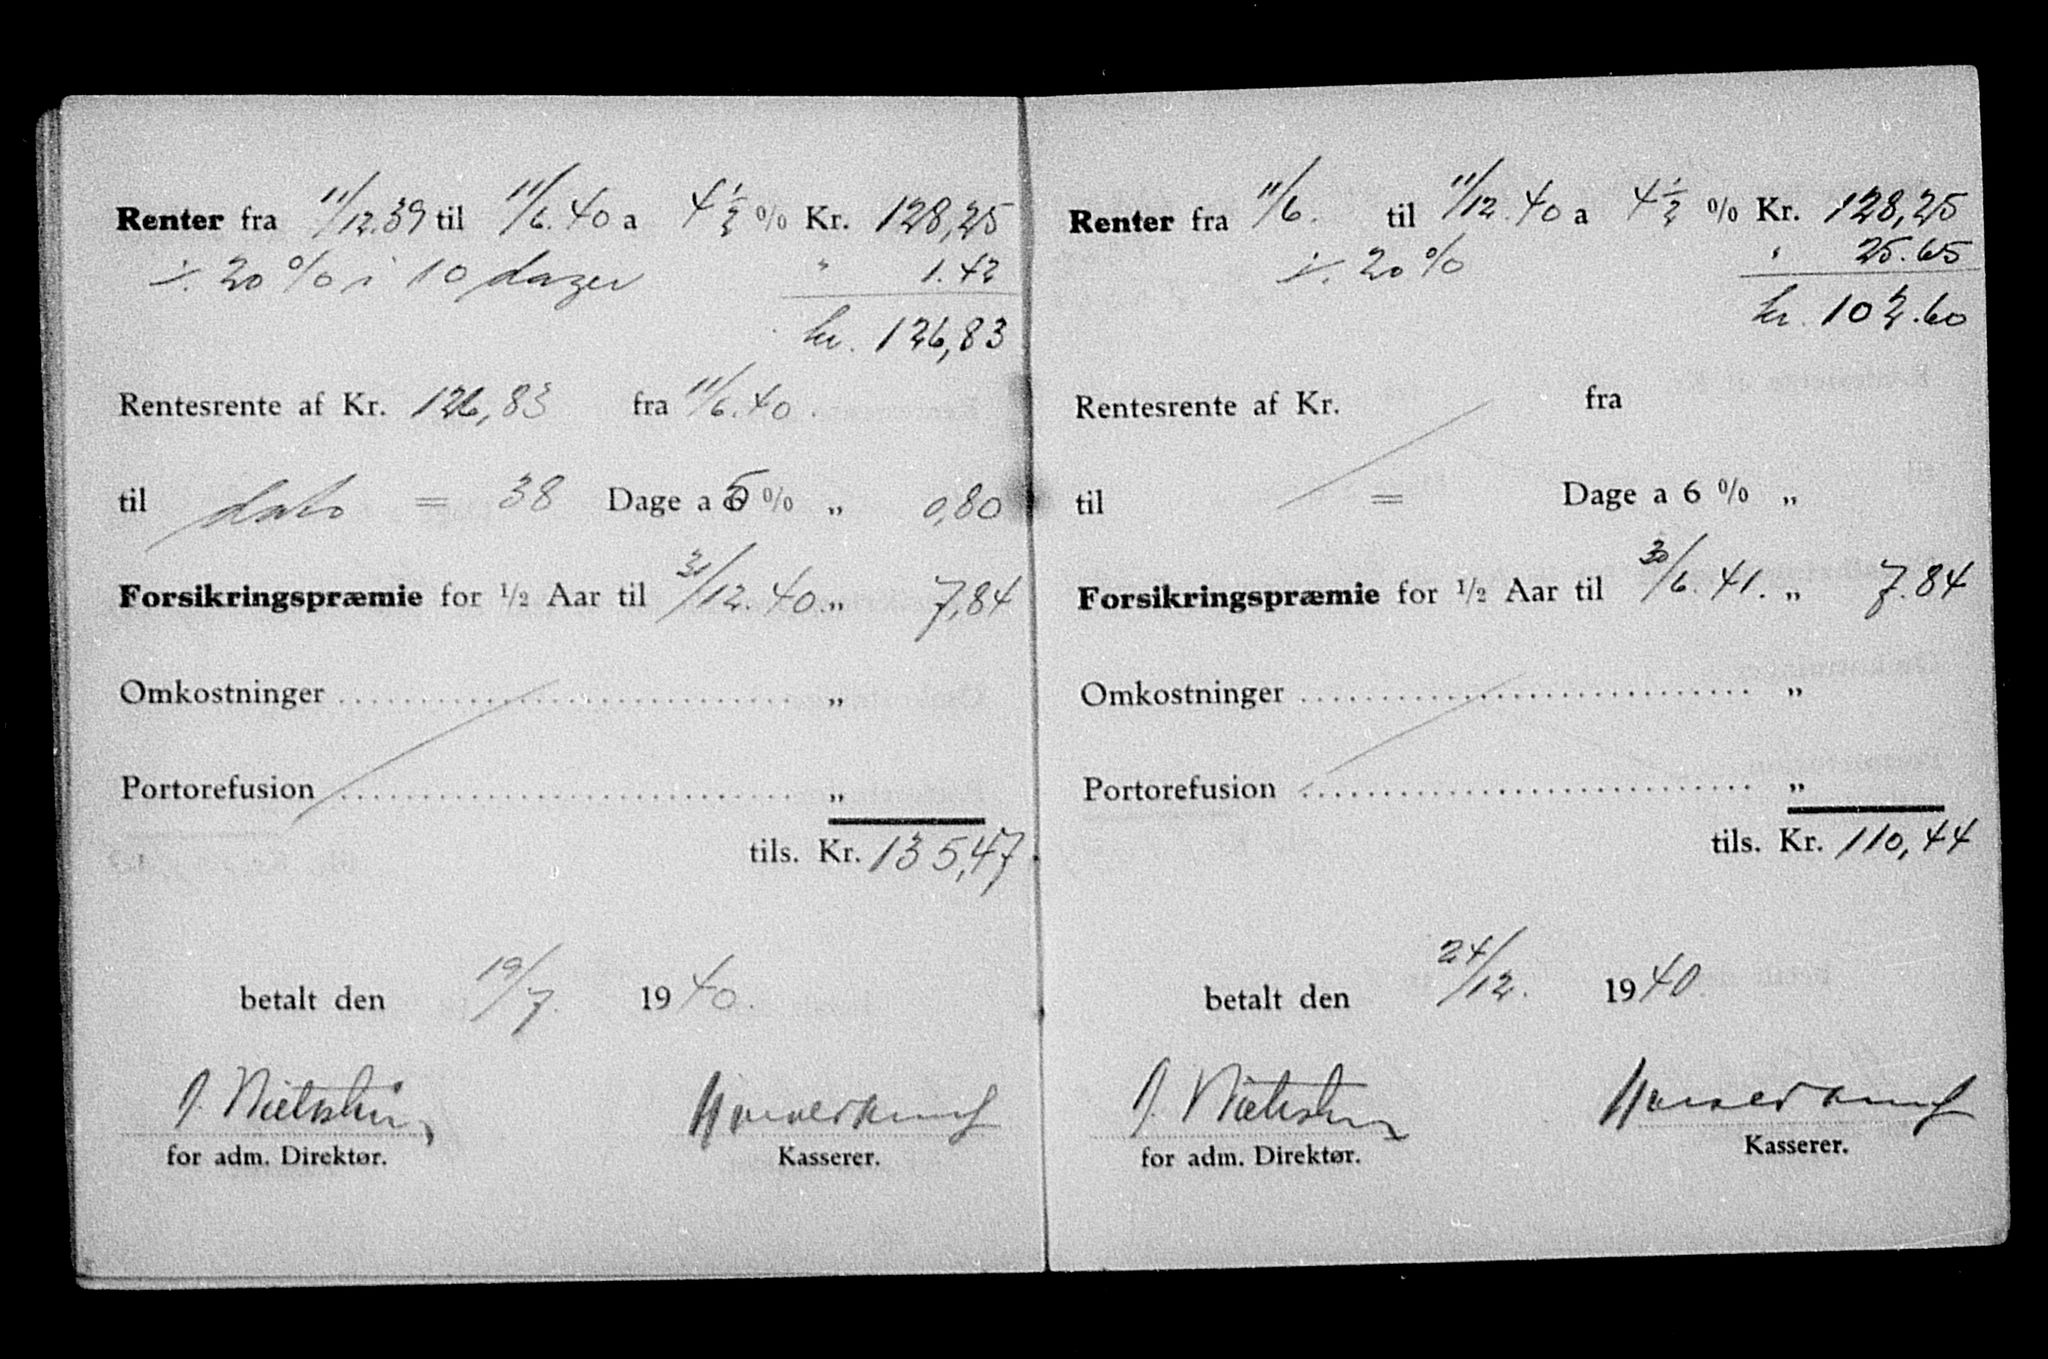 Renter fra 11/12.39 til 11/6.40 a 4½ % Kr. 128,25
÷ 20 % i 10 dager " 1.42
kr. 126,83
Rentesrente af Kr. 126,83 fra 11/6.40.
til dato = 38 Dage a 6 % „ 0,80
Forsikringspræmie for 1/2 Aar til 31/12.40. „ 7,84
Omkostninger „
Portorefusion „
tils. Kr. 135,47
betalt den 19/7. 1940.
for adm. Direktør. Kasserer.
Renter fra 11/6. til 11/12.40 a 4½ % Kr. 128,25
÷ 20 % " 25.65
kr. 102.60
Rentesrente af Kr. fra
til = Dage a 6 % „
Forsikringspræmie for 1/2 Aar til 30/6.41. „ 7.84
Omkostninger „
Portorefusion „
tils. Kr. 110,44
betalt den 24/12. 1940.
for adm. Direktør. Kasserer.